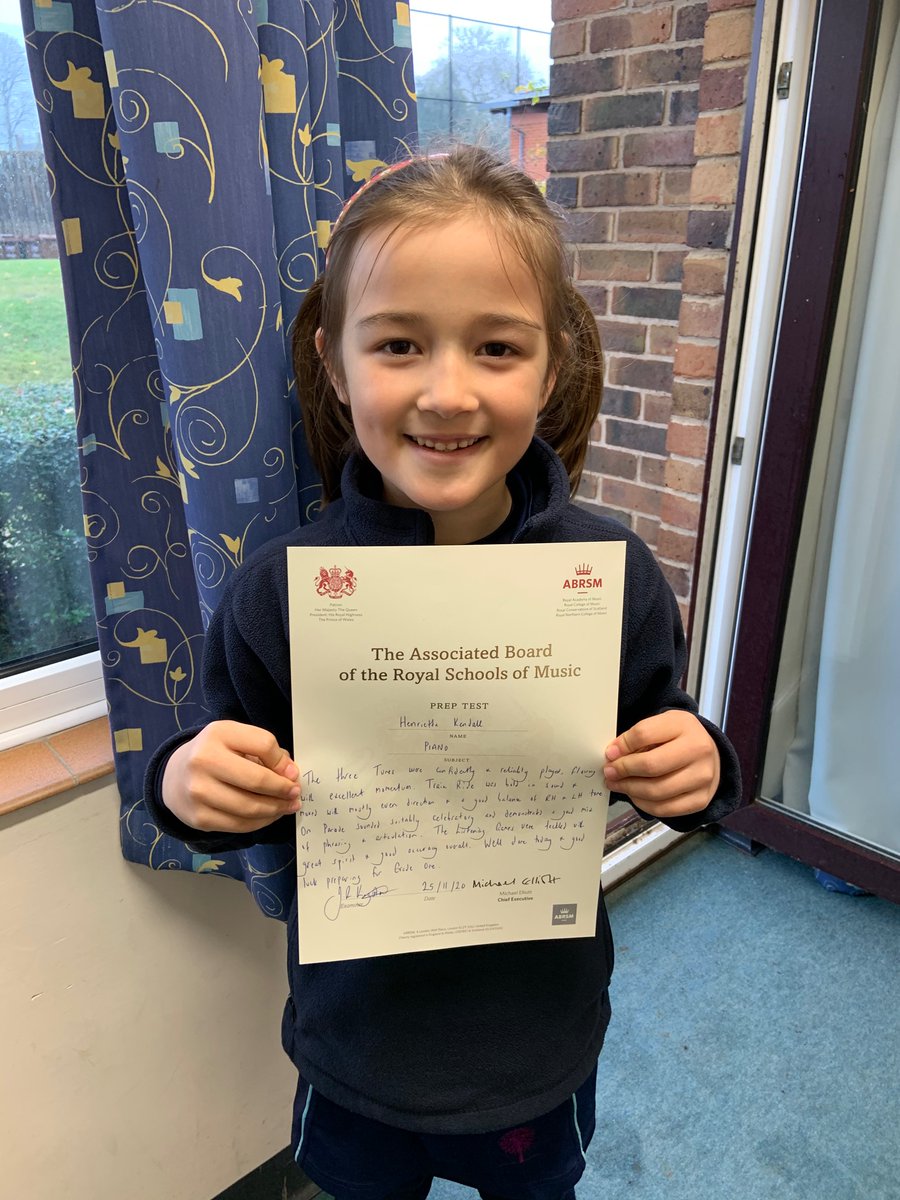 Patron
Her Majesty The Queen
President: His Royal Highness
The Prince of Wales
ABRSM
Royal Academy of Music
Royal College of Music
Royal Conservatoire of Scotland
Royal Northern College of Music
The Associated Board
of the Royal Schools of Music
PREP TEST
Henrietta Kendall
NAME
PIANO
SUBJECT
The three Tunes were confidently & reliably played, flowing
with excellent momentum. Train Ride was bold in sound &
moved with mostly even direction & a good balance of RH & LH tone
On Parade sounded suitably celebratory and demonstrated a good
of phrasing & articulation. The Listening Games were tackled with
great spirit & good accuracy overall. Well done today & good
luck preparing for Grade One.
25/11/20 Michael Elliott
Examiner Date Michael Elliott
Chief Executive
ABRSM